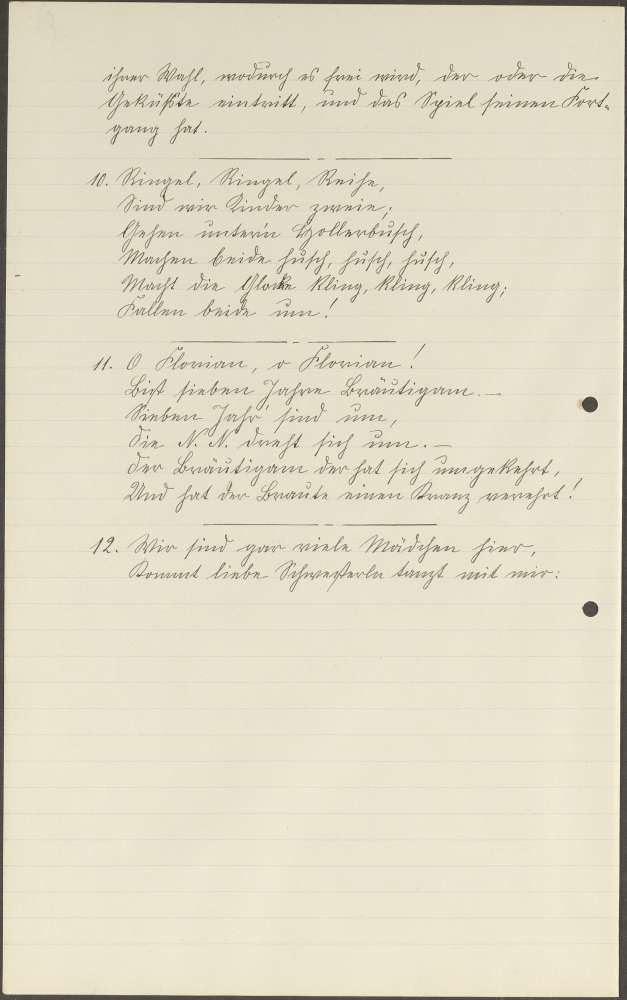 ihrer Wahl, wodurch es frei wird, der oder die
Geküßte eintritt, und das Spiel seinen Fort-
gang hat.
10. Ringel, Ringel, Reihe,
Sind wir Kinder zweie;
Gehen unter'n Hollerbusch,
Machen beide husch, husch, husch,
Macht die Glocke kling, kling, kling;
Fallen beide um!
11. O Florian, o Florian!
Bist sieben Jahre Bräutigam. –
Sieben Jahr' sind um,
Die N. N. dreht sich um. –
Der Bräutigam der hat sich umgekehrt,
Und hat der Braute einen Kranz verehrt!
12. Wir sind gar viele Mädchen hier,
Kommt liebe Schwesterln tanzt mit mir: